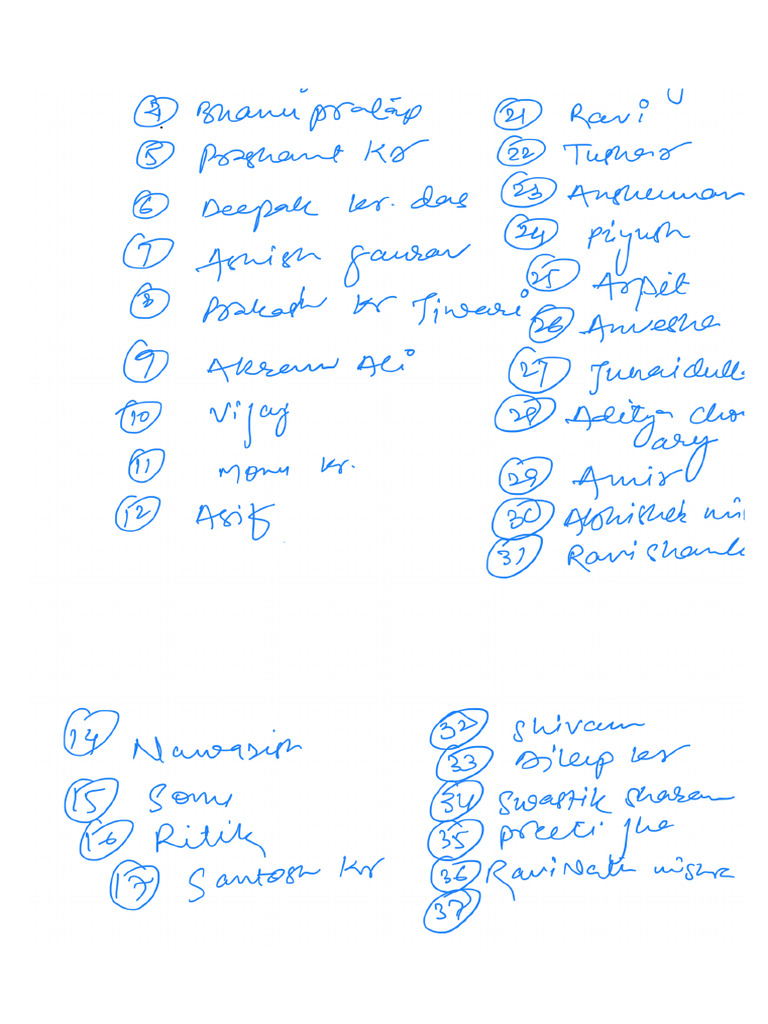 4 Bhanu pratap
5 Prashant Kr
6 Deepak kr. das
7 Ashish gaurav
8 Prakash Kr Tiwari
9 Akram Ali
10 Vijay
11 Monu kr.
12 Asif
21 Ravi
22 Tusher
23 Anshuman
24 Piyush
25 Arpit
26 Anvesha
27 Junaidull
28 Aditya Cho
ary
29 Amir
30 Abhishek mi
31 Ravi Shank
14 Nawazish
15 Sonu
16 Ritik
17 Santosh Kr
32 Shivam
33 Dileep kr
34 Swastik Sharan
35 Preeti Jha
36 Ravi Nath mishra
37